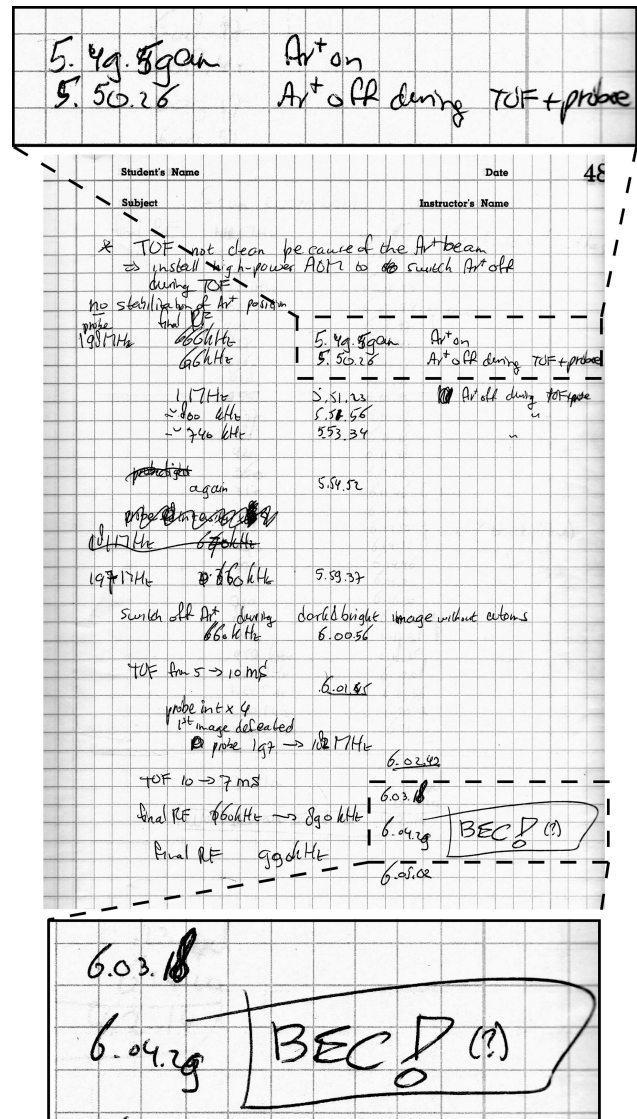 5.49.59am Ar+ on
5.50.26 Ar+ off during TOF + probe
Student's Name Date 48
Subject Instructor's Name
* TOF not clean because of the Ar+ beam
⇒ install high-power AOM to switch Ar+ off
during TOF
no stabilization of Ar+ position
probe final RF
198 MHz 666 kHz 5.49.59am Ar+ on
666 kHz 5.50.26 Ar+ off during TOF + probe
1.1 MHz 5.51.23 Ar+ off during TOF + probe
~ 800 kHz 5.51.56 "
~ 740 kHz 5.53.34 "
again 5.54.52
660kHz
197 MHz 660 kHz 5.59.37
switch off Ar+ during dark & bright image without atoms
660 kHz 6.00.56
TOF from 5 → 10 ms
6.01.45
probe int x 4
1st image defeated
probe 197 → 182 MHz
6.02.42
TOF 10 → 7 ms
6.03.18
final RF 660kHz → 890 kHz 6.04.29 BEC! (?)
final RF 990kHz 6.05.02
6.03.18
6.04.29 BEC! (?)